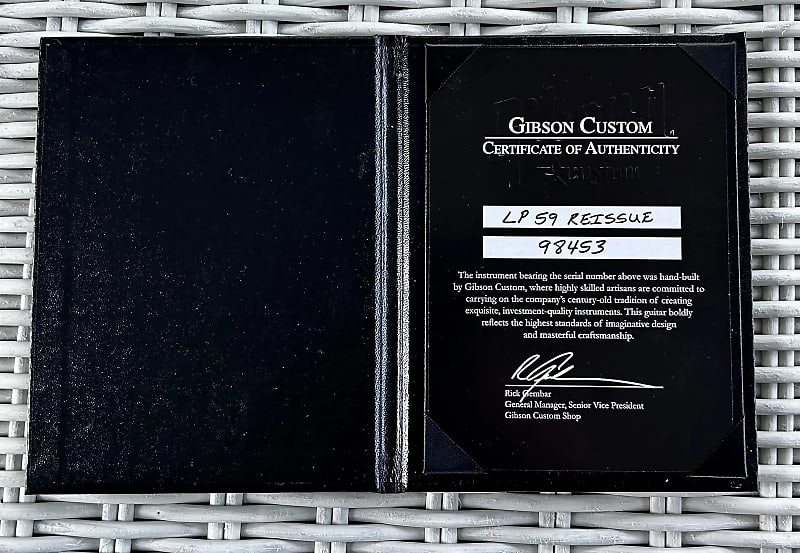 GIBSON CUSTOM
CERTIFICATE OF AUTHENTICITY
LP 59 REISSUE
98453
The instrument bearing the serial number above was hand-built
by Gibson Custom, where highly skilled artisans are committed to
carrying on the company's century-old tradition of creating
exquisite, investment-quality instruments. This guitar boldly
reflects the highest standards of imaginative design
and masterful craftsmanship.
Rick Gembar
General Manager, Senior Vice President
Gibson Custom Shop